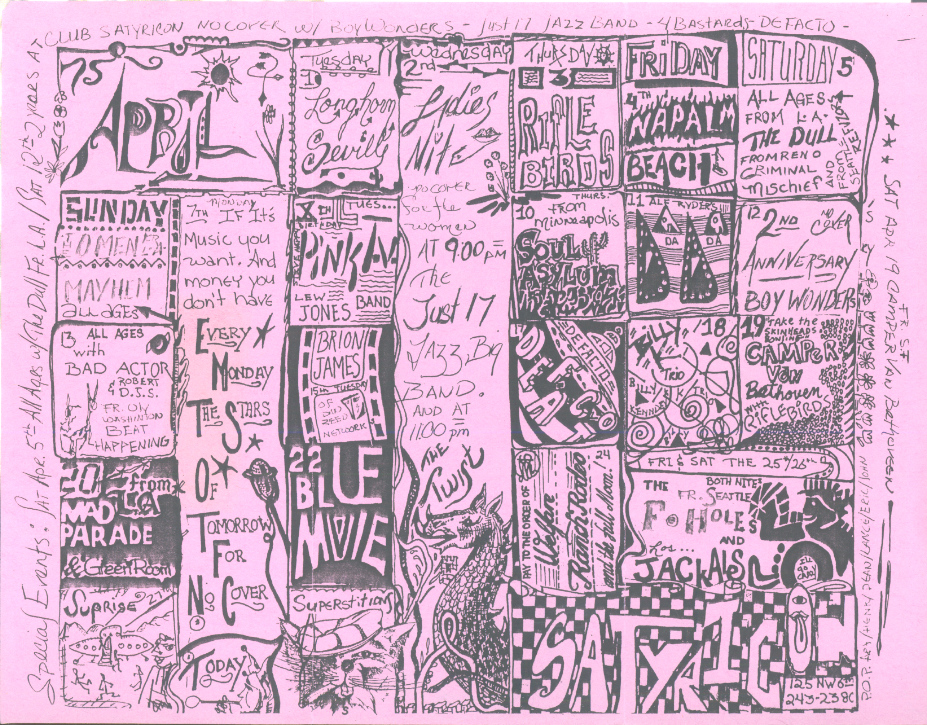 CLUB SATYRICON NO COVER W/ BOY WONDERS - Just 17 JAZZ BAND - 4 Bastards - DEFACTO -
Special Events: SAT APR. 5th All Ages w/ The Dull Fr. L.A. / SAT. 12th 2 years AT
APRIL
Tuesday
1
Longhorn
Seville
Wednesday
2nd
Ladies
Nite
no cover
for the
women
AT 9:00 PM
The
Just 17
JAZZ Big
BAND.
AND AT
11:00 pm
THE
Twist
THURSDAY
3
RIFLE
BIRDS
FRIDAY
4TH
NAPALM
BEACH
SATURDAY 5
ALL AGES -
FROM L.A.
THE DULL
FROM RENO
CRIMINAL
Mischief
AND
FROM
SEATTLE
SUNDAY
MAYHEM
all ages
7TH MONDAY
IF It's
Music you
want. And
money you
don't have
EVERY
MONDAY
THE STARS
OF
TOMORROW
FOR
NO COVER
TODAY
TUES...
BIRTHDAY
PINK
LEW
JONES BAND
10 THURS.
from
minneapolis
SOUL
ASYLUM
11 ALF RYDERS
DA DA
12
2ND
NO COVER
ANNIVERSARY
BOY WONDERS
13 ALL AGES
with
BAD ACTOR
ROBERT
& D.J.S.
FR. OLY
WASHINTON
BEAT
HAPPENING
BRION
JAMES
15th TUESDAY
NETWORK
DEFACTO
BILLY
TRIO
18
BILLY
KENNEDY
19 TAKE the
SKINHEADS
BOWLING
CAMPER
VAN
Bethoven,
with
RIFLEBIRDS
20 from
LA
MAD
PARADE
& Green Room
22
BLUE
MOVIE
24
PAY TO THE ORDER OF
Welfare
Ranch Rodeo
and the all Mom!
FRI & SAT THE 25/26th
THE BOTH NITES
FR. SEATTLE
F-HOLES
AND
Los...
JACKALS
Suprise 27
Superstition
SATYRICON
125 NW 6th
243-2380
*** SAT APR 19 CAMPER VAN BEETHOVEN
FR. S.F.